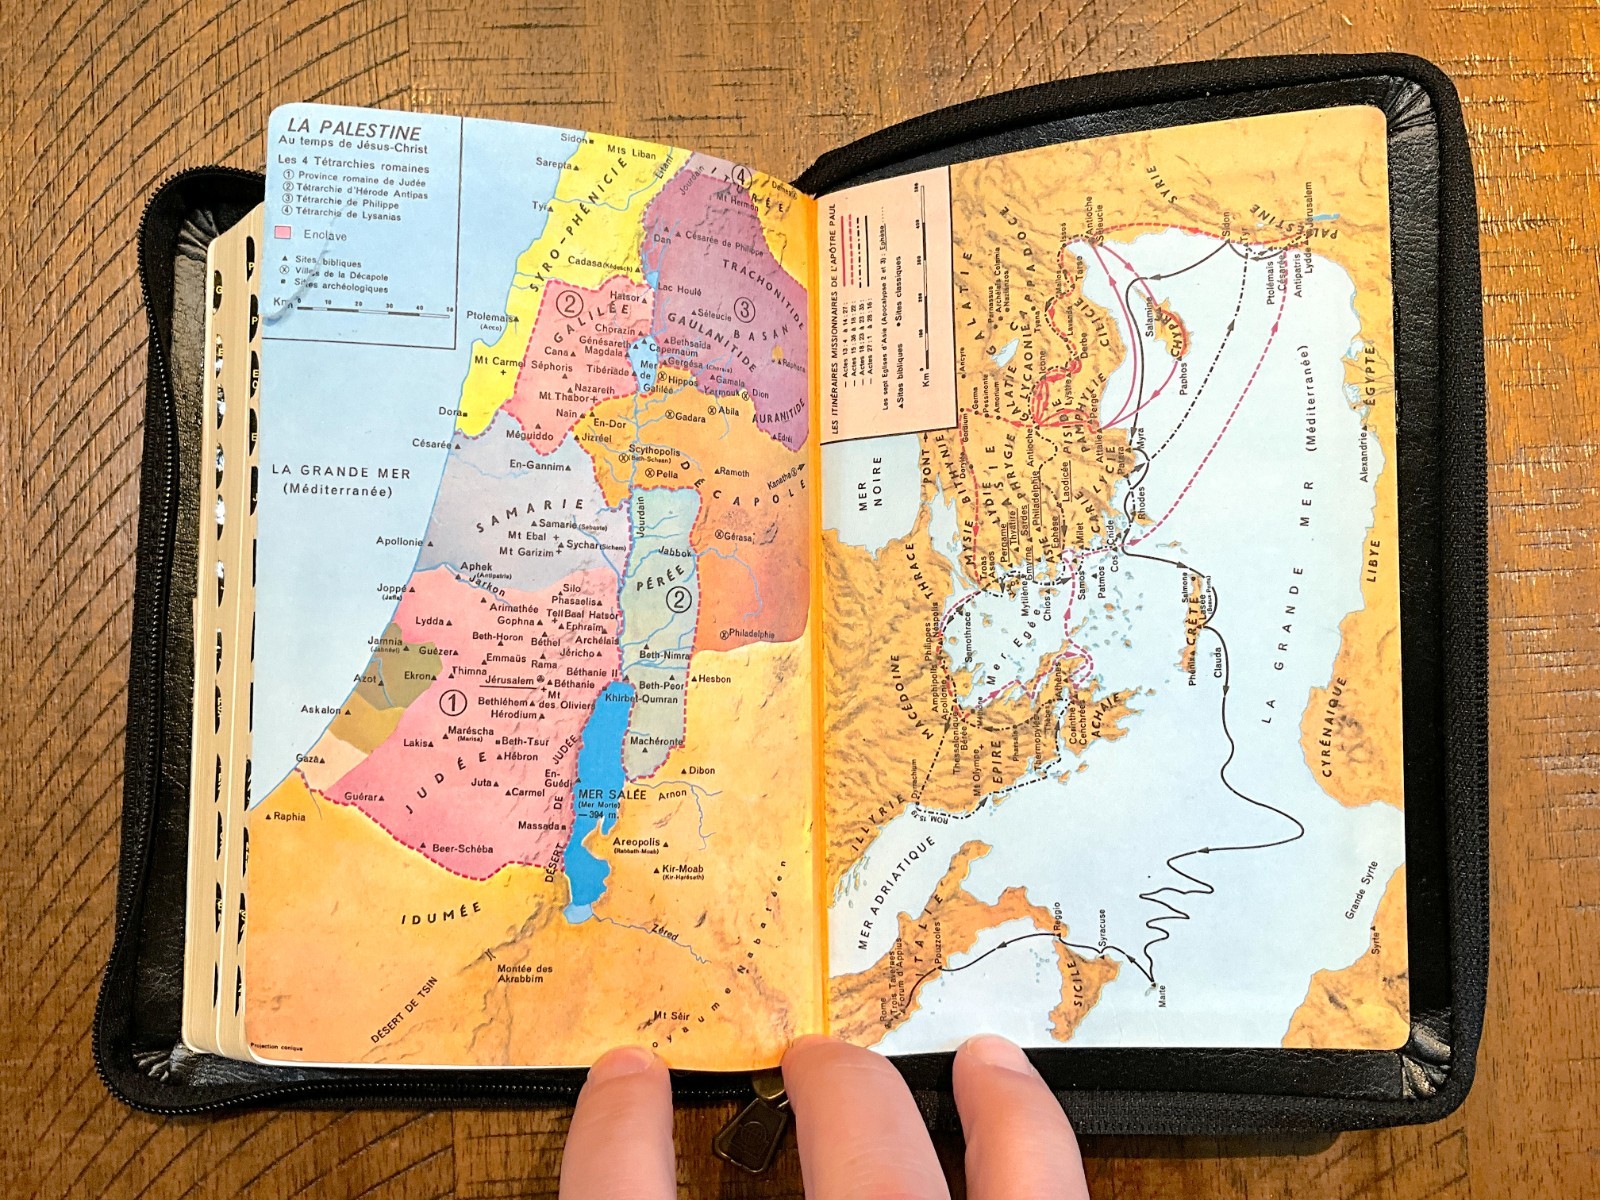 LA PALESTINE
Au temps de Jésus-Christ
Les 4 Tétrarchies romaines
① Province romaine de Judée
② Tétrarchie d'Hérode Antipas
③ Tétrarchie de Philippe
④ Tétrarchie de Lysanias
Enclave
▲ Sites bibliques
ⓧ Villes de la Décapole
■ Sites archéologiques
Km 0 10 20 30 40 50
Sidon
Mts Liban
Sarepta
Litani
Tyr
SYRO-PHÉNICIE
Jourdain
④
ITURÉE
Mt Hermon
Dan
Césarée de Philippe
Cadasa (Kédesch)
TRACHONITIDE
Lac Houlé
②
Hatsor
③
Séleucie
GALILÉE
GAULANITIDE
BASAN
Ptolemaïs
(Acco)
Chorazin
Bethsaïda
Génésareth
Capernaum
Cana
Magdala
Gergésa
Raphana
Mt Carmel
Séphoris
Tibériade
Mer de Galilée
Hippos
Gamala
Nazareth
Yarmouk
Dion
Mt Thabor
Abila
AURANITIDE
Dora
Naïn
En-Dor
Gadara
Edréi
Méguiddo
Jizréel
Césarée
Scythopolis
(Beth-Schean)
LA GRANDE MER
(Méditerranée)
En-Gannim
Pella
Ramoth
Kanatha
DÉCAPOLE
SAMARIE
Jourdain
Samarie (Sébaste)
Mt Ebal
Sychar (Sichem)
Gérasa
Apollonie
Mt Garizim
Jabbok
Aphek
(Antipatris)
PÉRÉE
Jarkon
Joppé
(Jaffa)
Silo
②
Phasaelis
Arimathée
Tell Baal Hatsor
Lydda
Gophna
Ephraïm
Philadelphie
Beth-Horon
Béthel
Archélaïs
Jamnia
(Jabnéel)
Guézer
Jéricho
Emmaüs
Rama
Beth-Nimra
Thimna
Béthanie II
Azot
Ekron
Jérusalem
Béthanie
Beth-Peor
Hesbon
①
Mt des Oliviers
Khirbet-Qumran
Askalon
Bethléhem
Hérodium
Maréscha
(Marisa)
Lakis
Beth-Tsur
Machéronte
JUDÉE
Hébron
Gaza
DÉSERT DE JUDÉE
En-Guédi
Dibon
Juta
Guérar
Carmel
MER SALÉE
(Mer Morte)
—394 m.
Arnon
Raphia
Massada
Beer-Schéba
Areopolis
(Rabbath-Moab)
Kir-Moab
(Kir-Haréseth)
IDUMÉE
Zéred
Montée des
Akrabbim
DÉSERT DE TSIN
Mt Séir
Royaume Nabatéen
Projection conique
LES ITINÉRAIRES MISSIONNAIRES DE L'APÔTRE PAUL
Actes 13 : 4 à 14 : 27 :
Actes 15 : 36 à 18 : 22 :
Actes 18 : 23 à 23 : 35 :
Actes 27 : 1 à 28 : 16 :
Les sept Eglises d'Asie (Apocalypse 2 et 3) : Ephèse
▲ Sites bibliques ● Sites classiques
Km 0 100 200 300 400 500
MER NOIRE
PONT
BITHYNIE
GALATIE
CAPPADOCE
SYRIE
PALESTINE
Ancyre
Pessinonte
Amorium
Tyane
Tarse
Antioche
Séleucie
Sidon
Tyr
Ptolémaïs
Césarée
Antipatris
Lydda
Jérusalem
Dorylée
Gordium
PHRYGIE
LYCAONIE
Icone
Lystre
Derbe
CILICIE
PISIDIE
PAMPHYLIE
Perge
Attalie
CHYPRE
Salamine
Paphos
LYCIE
Patara
Myra
Rhodes
MYSIE
LYDIE
ASIE
CARIE
Troas
Assos
Pergame
Thyatire
Smyrne
Sardes
Philadelphie
Ephèse
Laodicée
Milet
Cnide
Cos
Mytilène
Chios
Samos
Patmos
THRACE
MACÉDOINE
Néapolis
Philippes
Amphipolis
Apollonie
Thessalonique
Bérée
Samothrace
Mer Egée
Mt Olympe
ÉPIRE
Thermopyles
Athènes
Corinthe
Cenchrées
ACHAÏE
ILLYRIE
Dyrrachium
ROM 15.19
MER ADRIATIQUE
CRÈTE
Salmone
Lasée
Phénix
Clauda
LA GRANDE MER (Méditerranée)
ÉGYPTE
Alexandrie
LIBYE
CYRÉNAÏQUE
Grande Syrte
Syrte
ITALIE
Rome
Trois Tavernes
Forum d'Appius
Pouzzoles
Reggio
SICILE
Syracuse
Malte